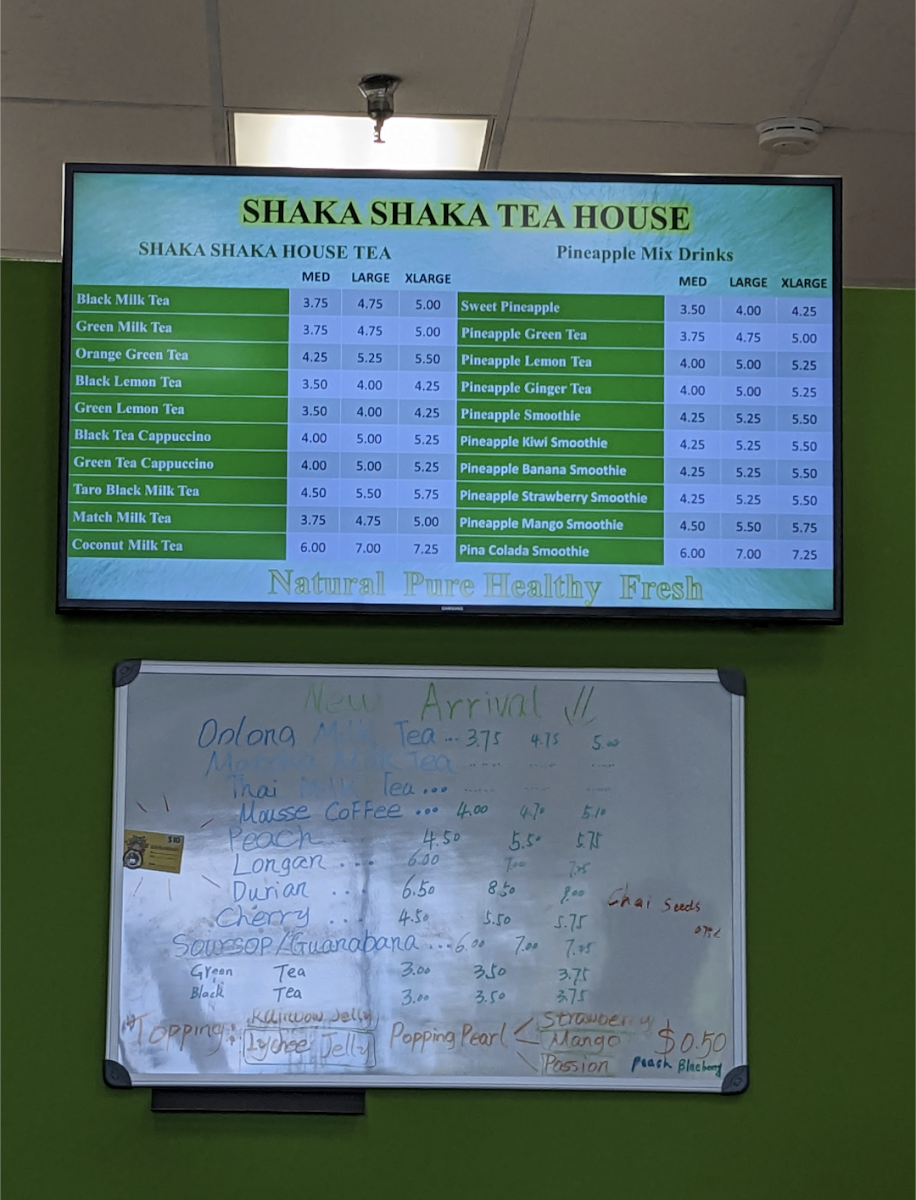 SHAKA SHAKA TEA HOUSE
SHAKA SHAKA HOUSE TEA
MED LARGE XLARGE
Black Milk Tea 3.75 4.75 5.00
Green Milk Tea 3.75 4.75 5.00
Orange Green Tea 4.25 5.25 5.50
Black Lemon Tea 3.50 4.00 4.25
Green Lemon Tea 3.50 4.00 4.25
Black Tea Cappuccino 4.00 5.00 5.25
Green Tea Cappuccino 4.00 5.00 5.25
Taro Black Milk Tea 4.50 5.50 5.75
Match Milk Tea 3.75 4.75 5.00
Coconut Milk Tea 6.00 7.00 7.25
Pineapple Mix Drinks
MED LARGE XLARGE
Sweet Pineapple 3.50 4.00 4.25
Pineapple Green Tea 3.75 4.75 5.00
Pineapple Lemon Tea 4.00 5.00 5.25
Pineapple Ginger Tea 4.00 5.00 5.25
Pineapple Smoothie 4.25 5.25 5.50
Pineapple Kiwi Smoothie 4.25 5.25 5.50
Pineapple Banana Smoothie 4.25 5.25 5.50
Pineapple Strawberry Smoothie 4.25 5.25 5.50
Pineapple Mango Smoothie 4.50 5.50 5.75
Pina Colada Smoothie 6.00 7.00 7.25
Natural Pure Healthy Fresh
SAMSUNG
New Arrival !!
Oolong Milk Tea ... 3.75 4.75 5.00
Milk Tea
Thai Milk Tea ...
Mousse Coffee ... 4.00 4.70 5.10
Peach 4.50 5.50 5.75
$10
Longan .... 6.00 7.00 7.25
Durian ... 6.50 8.50 9.00
Chai Seeds
Cherry ... 4.50 5.50 5.75
Soursop/Guanabana ... 6.00 7.00 7.25
Green Tea 3.00 3.50 3.75
Black Tea 3.00 3.50 3.75
Topping: Rainbow Jelly
Lychee Jelly
Popping Pearl Strawberry
Mango
Passion
$0.50
Peach Blueberry